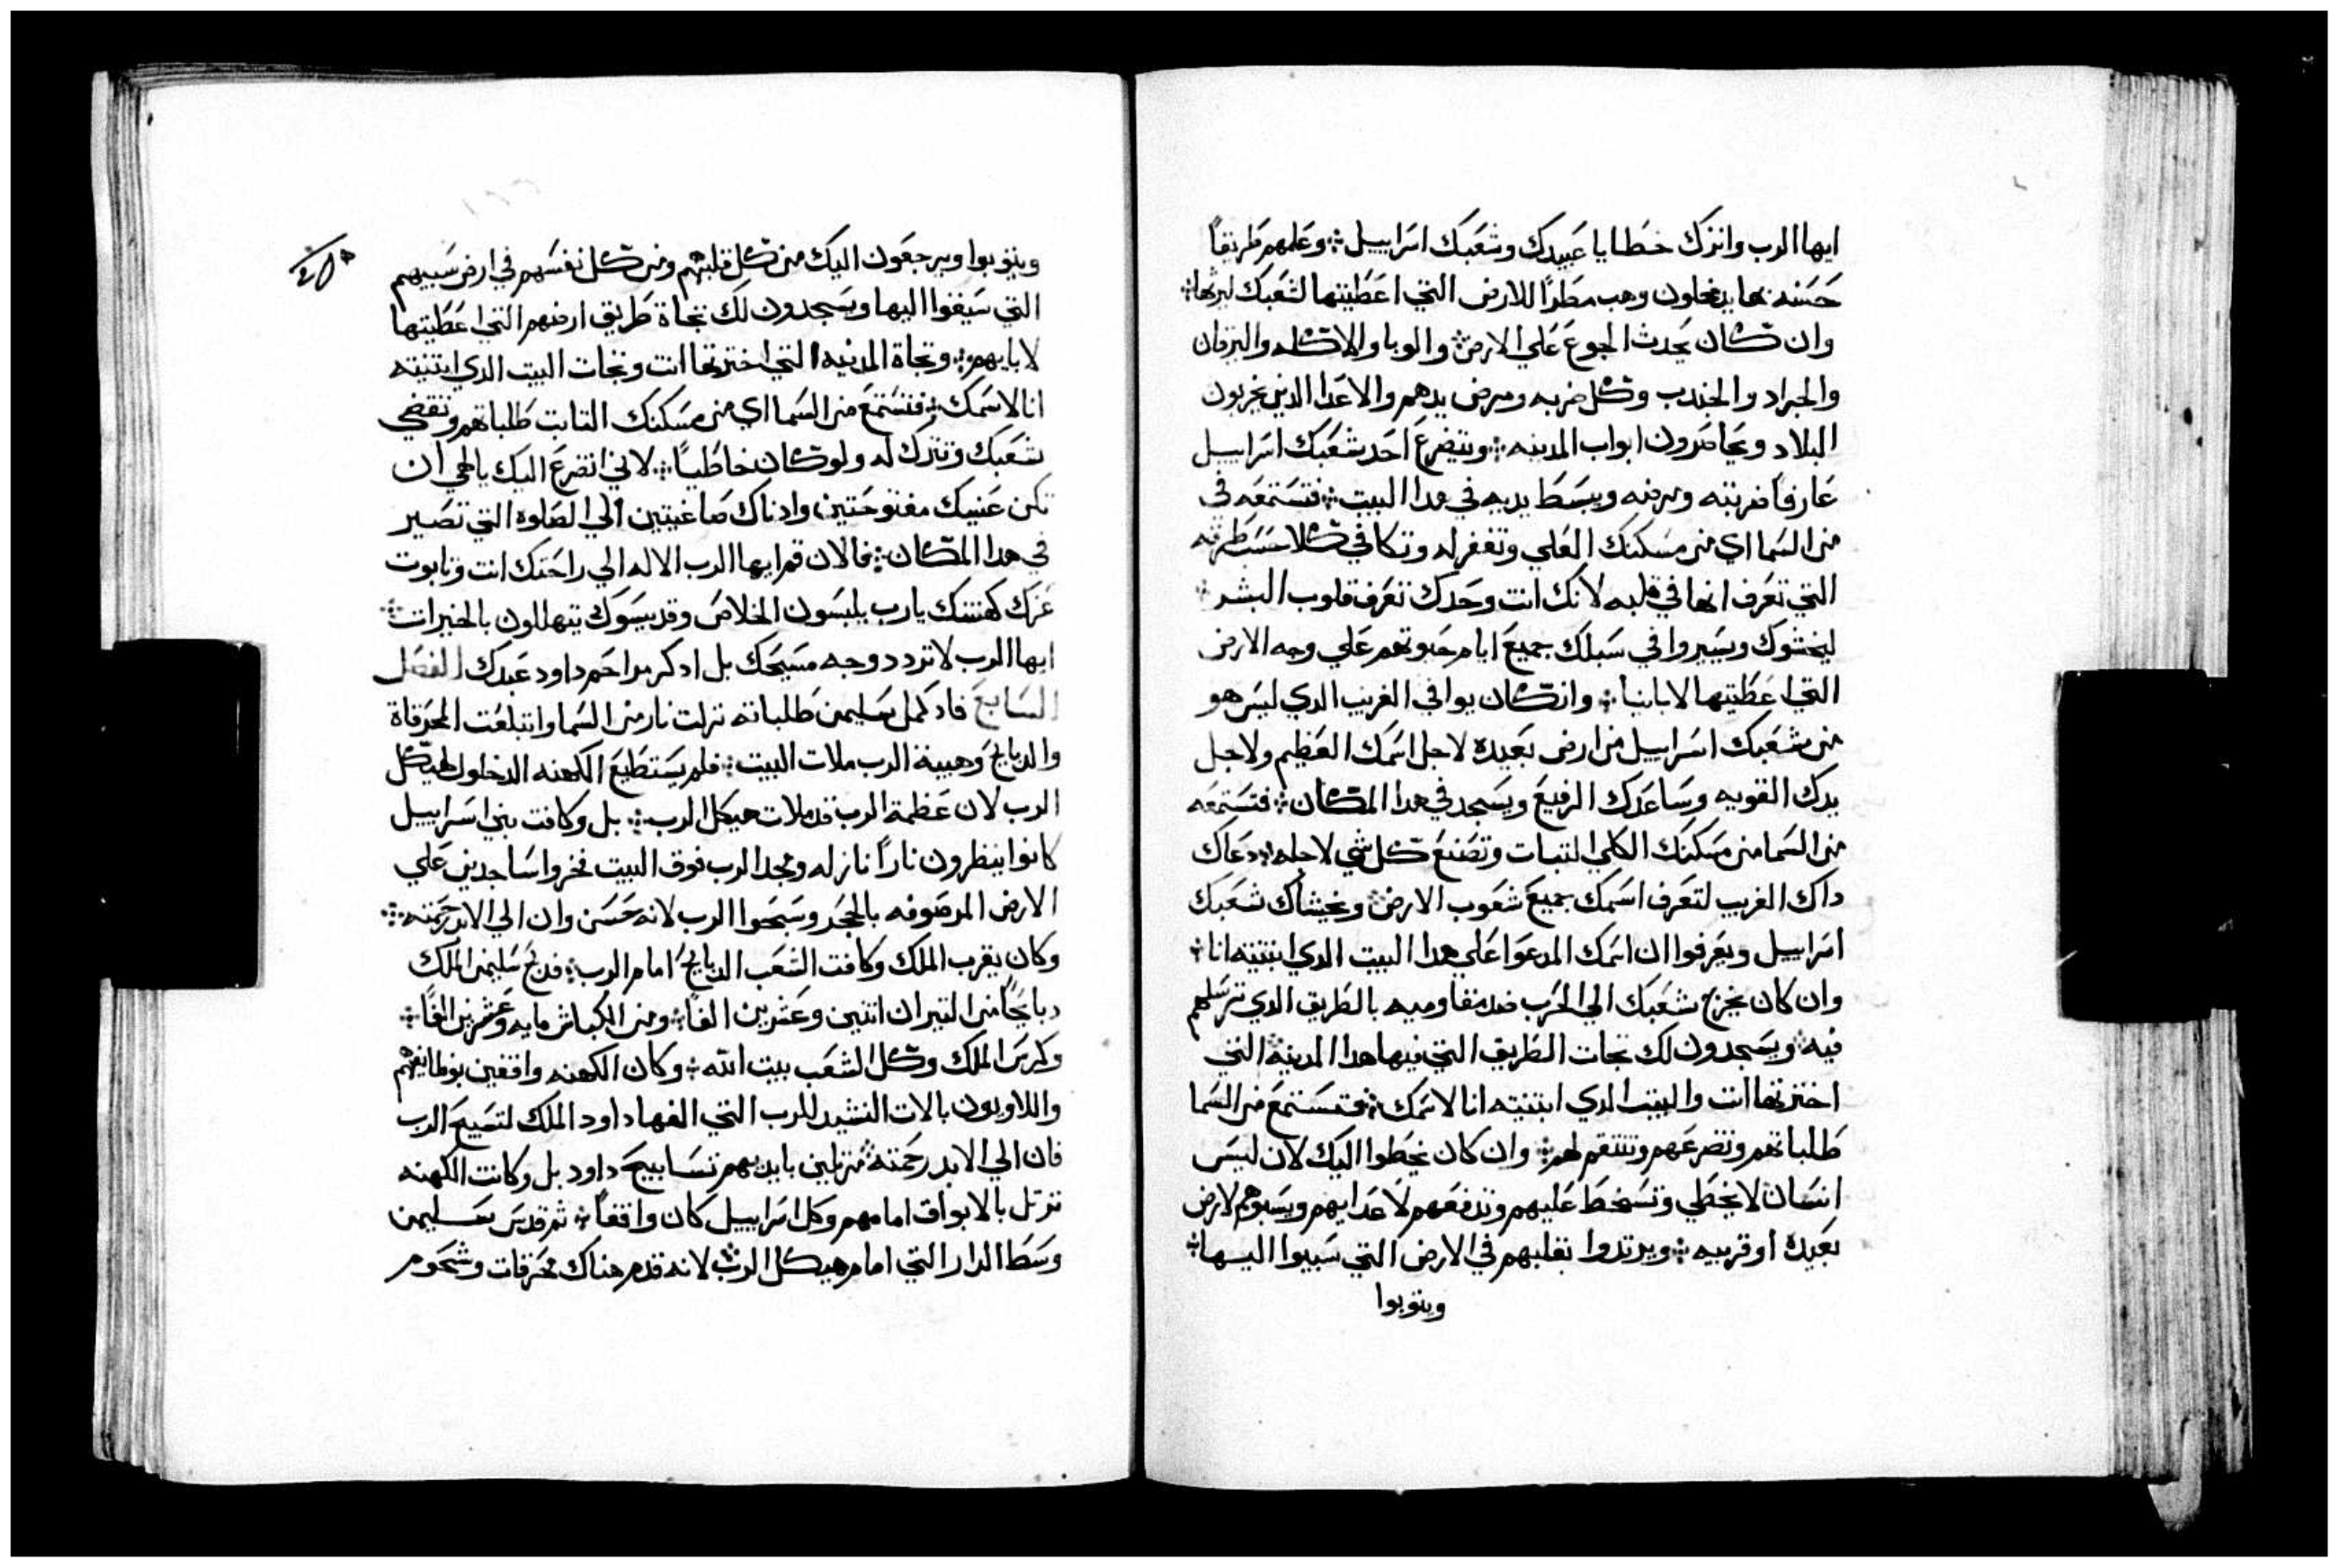 ايها الرب واترك خطايا عبيدك وشعبك اسراييل ܀ وعلمهم طريقاً
حسنه بها يدخلون وهب مطراً للارض التي اعطيتها لشعبك ليرثها ܀
وان كان يحدث الجوع علي الارض ܀ والوبا والاكله واليرقان
والجراد والجندب وكل ضربه ومرض يدهم والاعدا الذين يخربون
البلاد ويحاصرون ابواب المدينه ܀ ويتضرع احد شعبك اسراييل
عارفاً ضربته ومرضه ويبسط يديه في هدا البيت ܀ فتستمعه في
من السما اي من مسكنك العلي وتغفر له وتكافي كلا حسب طرقه
التي تعرف انها في قلبه لانك انت وحدك تعرف قلوب البشر ܀
ليخشوك ويسيروا في سبلك جميع ايام حيوتهم علي وجه الارض
التي اعطيتها لاباينا ܀ وان كان يوافي الغريب الدي ليس هو
من شعبك اسراييل من ارض بعيده لاجل اسمك العظيم ولاجل
يدك القويه وساعدك الرفيع ويسجد في هدا المكان ܀ فتستمعه
من السما من مسكنك الكلي التبات وتصنع كل شي لاجله دعاك
داك الغريب لتعرف اسمك جميع شعوب الارض ܀ ويخشاك شعبك
اسراييل ويعرفوا ان اسمك المدعوا علي هدا البيت الدي ابتنيته انا ܀
وان كان يخرج شعبك الي الحرب ضد مقاوميه بالطريق الدي ترسلهم
فيه ܀ ويسجدون لك تجات الطريق التي فيها هدا المدينه التي
اخترتها انت والبيت الدي ابتنيته انا لاسمك ܀ فتستمع من السما
طلباتهم وتضرعهم وتنتقم لهم ܀ وان كان يخطوا اليك لان ليس
انسان لا يخطي وتسخط عليهم وتدفعهم لاعدايهم ويسبوهم لارض
بعيدة او قريبه ܀ ويرتدوا بقلبهم في الارض التي سبيوا اليها ܀
ويتوبوا
ويتوبوا ويرجعون اليك من كل قلبهم ومن كل نفسهم في ارض سبيهم
التي سيقوا اليها ويسجدون لك تجاة طريق ارضهم التي اعطيتها
لابايهم ܀ وتجاة المدينه التي اخترتها انت وتجات البيت الدي ابتنيته
انا لاسمك ܀ فتستمع من السما اي من مسكنك التابت طلباتهم وتقضي
شعبك وتترك له ولو كان خاطياً ܀ لاني اتضرع اليك يا الهي ان
تكن عنييك مفتوحتين وادناك صاغيتين الي الصلوة التي تصير
في هدا المكان ܀ فالان قم ايها الرب الاله الي راحتك انت وتابوت
عزك كهنتك يارب يلبسون الخلاص وقديسوك يتهللون بالخيرات ܀
ايها الرب لا تردد وجه مسيحك بل ادكر مراحم داود عبدك الفصل
السابع فاد كمل سليمن طلباته نزلت نار من السما وابتلعت المحرقاة
والدبايح وهيبة الرب ملات البيت ܀ فلم يستطيع الكهنه الدخلول لهيكل
الرب لان عظمة الرب قد ملات هيكل الرب ܀ بل وكافت بني اسراييل
كانوا ينظرون ناراً نازله ومجد الرب فوق البيت فخروا ساجدين علي
الارض المرصوفه بالحجر وسبحوا الرب لانه حسن وان الي الابد رحمته ܀
وكان يقرب الملك وكافت الشعب الدبايح امام الرب ܀ فدبح سليمن الملك
دبايحاً من التيران اتنين وعشرين الفاً ܀ ومن الكباش مايه وعشرين الفاً ܀
وكرس الملك وكل الشعب بيت الله ܀ وكان الكهنه واقفين بوظايفهم
واللاويون بالات النشيد للرب التي الفها داود الملك لتسبيح الرب
فان الي الابد رحمته ܀ مرتلين بايديهم تسابيح داود بل وكانت الكهنه
ترتل بالابواق امامهم وكل اسراييل كان واقفاً ܀ تم قدس سليمن
وسط الدار التي امام هيكل الرب ܀ لانه قدم هناك محرقات وشحوم